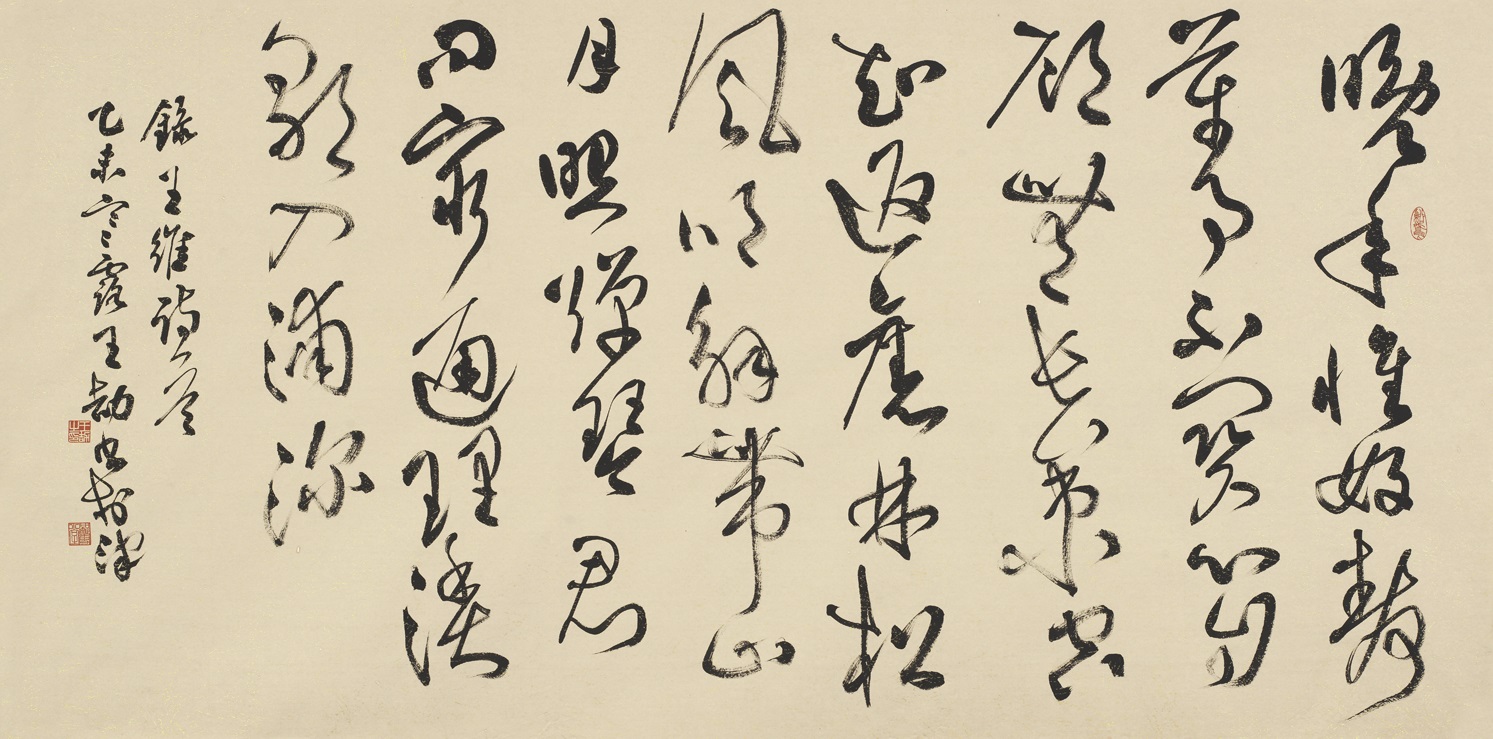 晚年惟好靜
萬事不關心自
顧無長策空
知返舊林松
風吹解帶山
月照彈琴君
問窮通理漁
歌入浦深
錄王維詩一首
乙未寒露王劼書於津